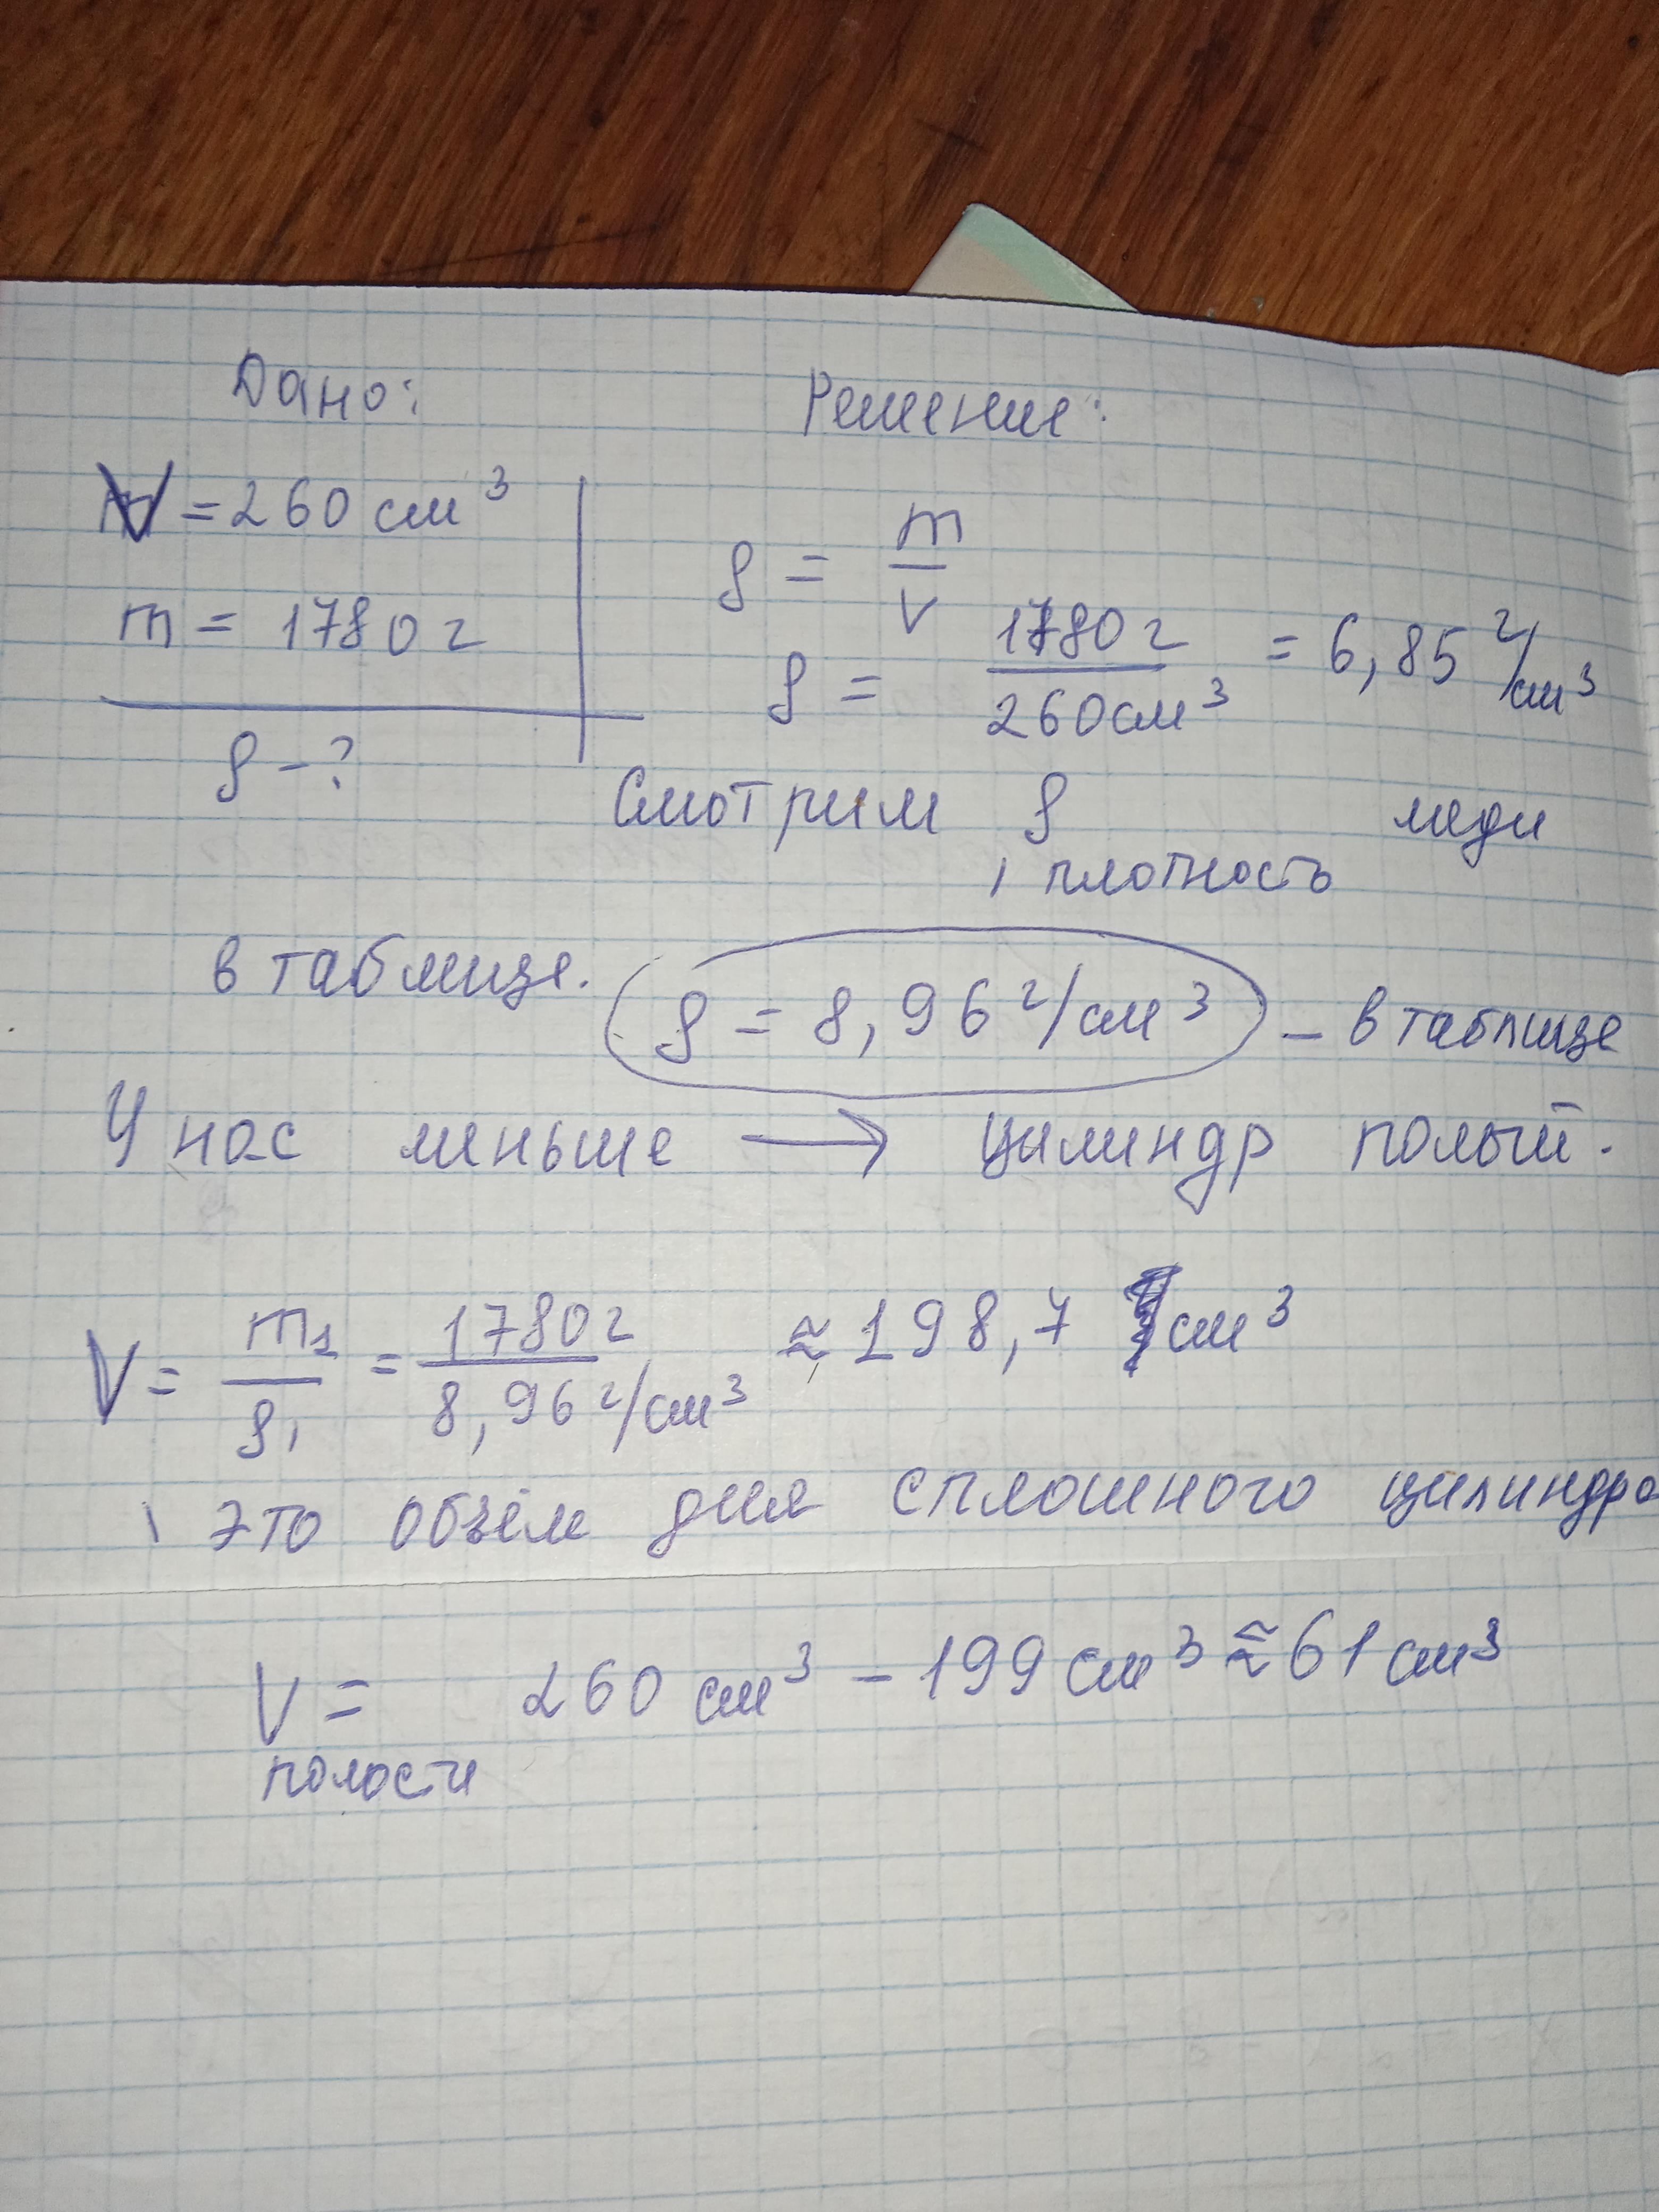 Дано:
Решение:
V = 260 см³
m = 1780 г
ρ - ?
ρ = m/V
ρ = 1780 г/260 см³ = 6,85 г/см³
Смотрим ρ меди
, плотность
в таблице. ρ = 8,96 г/см³ – в таблице
У нас меньше → цилиндр полый.
V = m₁/ρ₁ = 1780 г/8,96 г/см³ ≈ 198,7 см³
, это объём для сплошного цилиндра
V = 260 см³ – 199 см³ ≈ 61 см³
полости